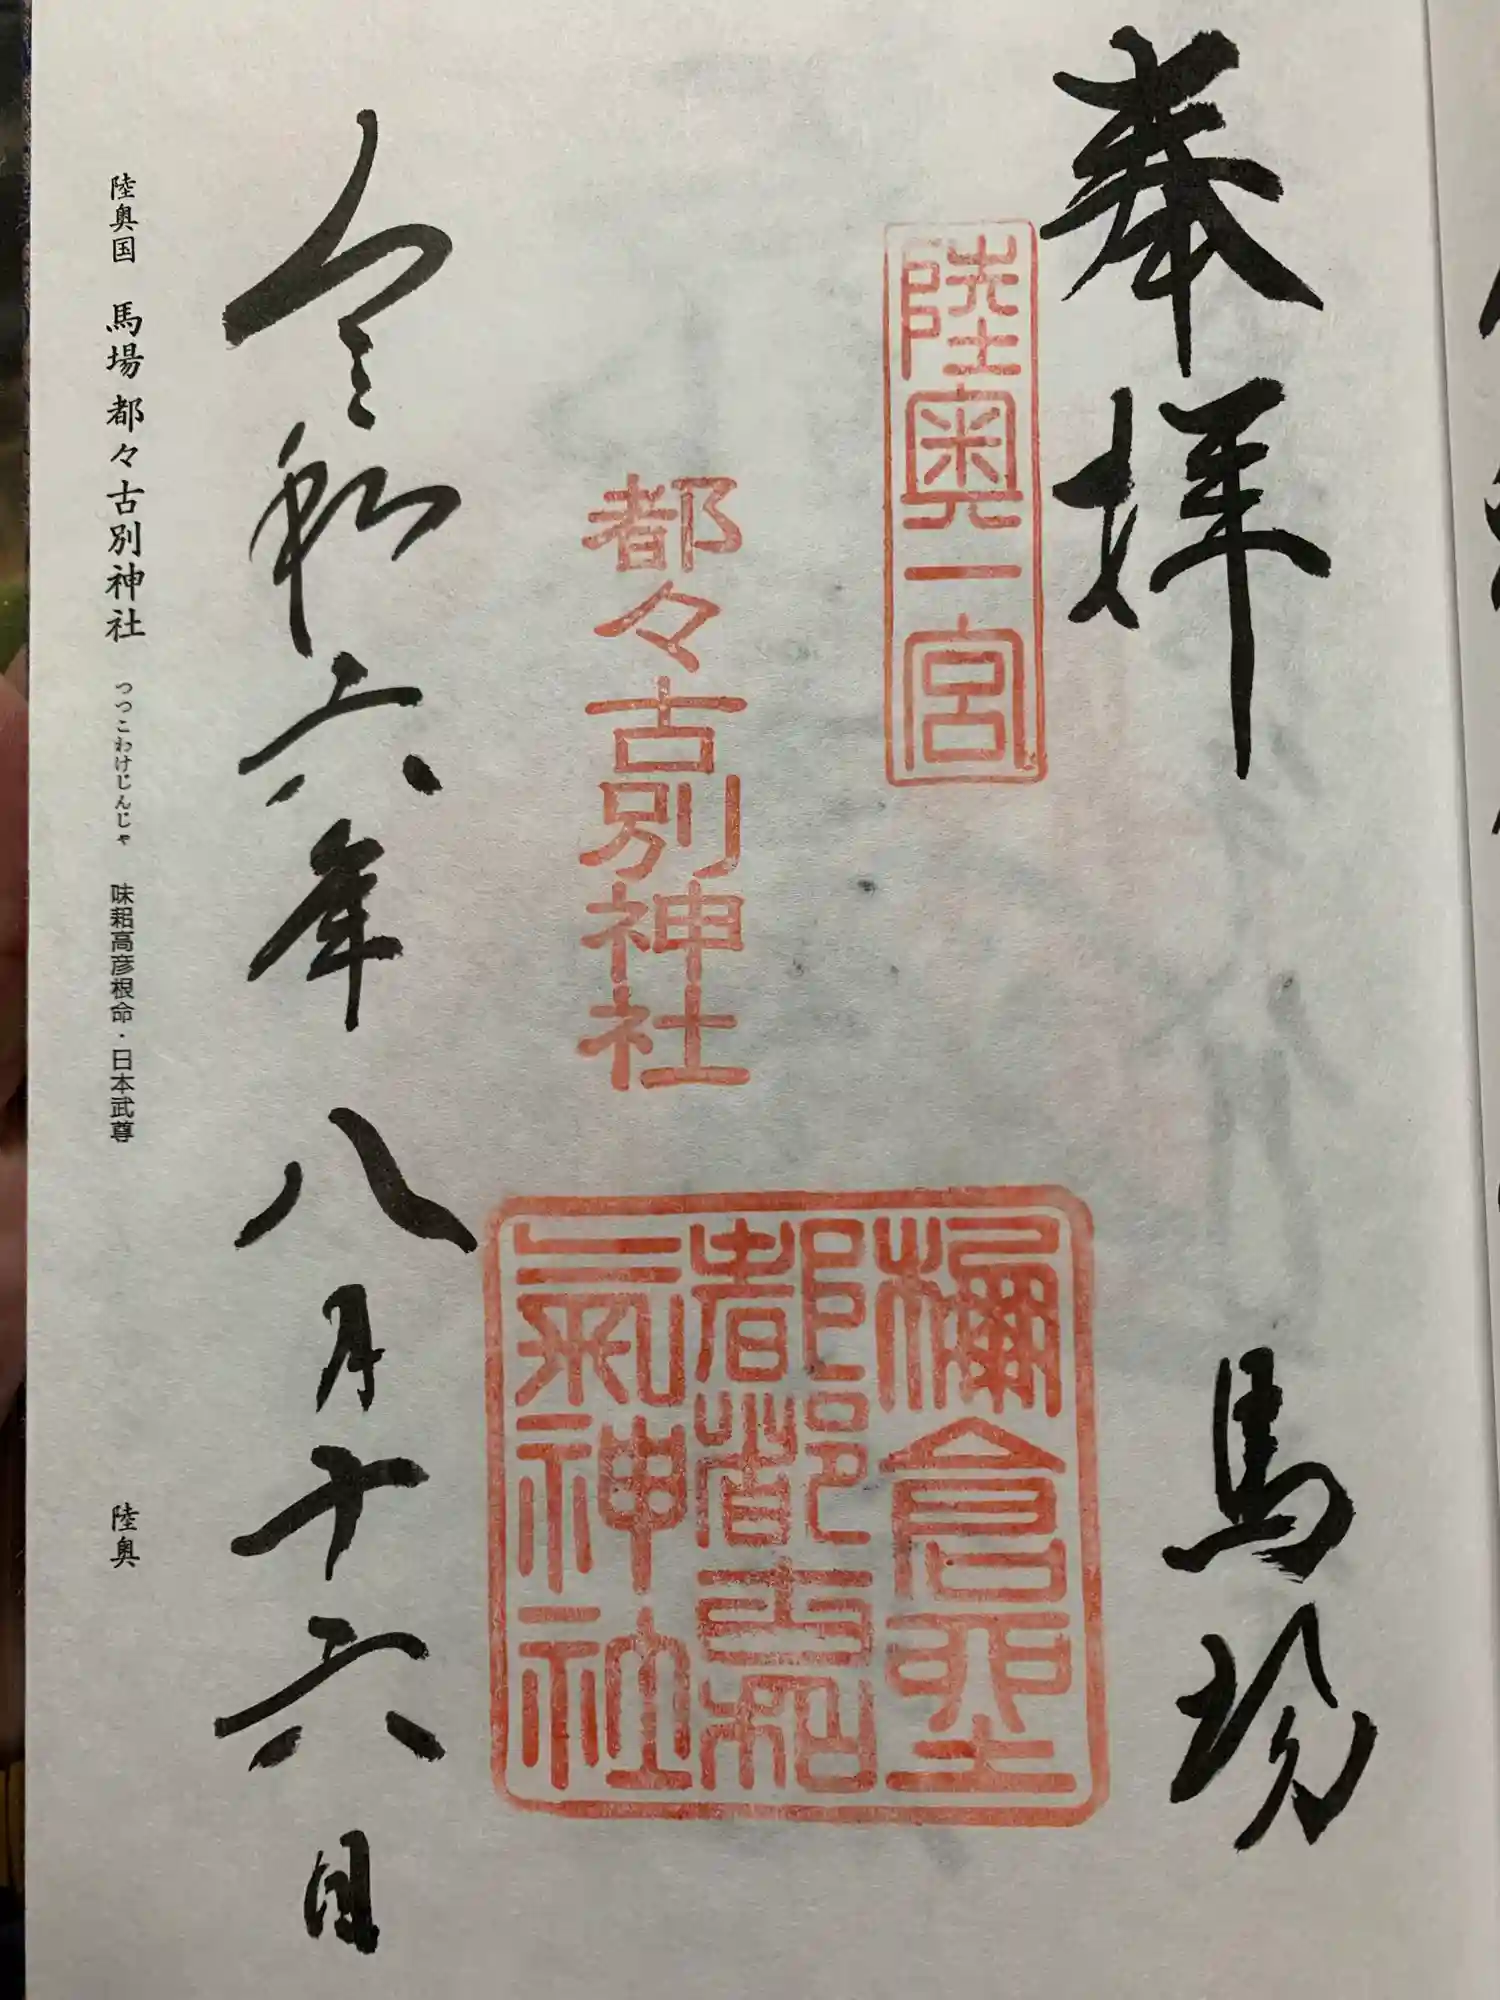 奉拝
馬場
陸奥一宮
都々古別神社
都都古和
氣神社
令和六年八月十六日
陸奥国 馬場都々古別神社 つつこわけじんじゃ 味耜高彦根命・日本武尊 陸奥